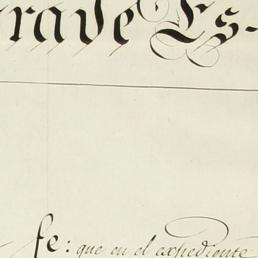 rade Es-
fe: que en el expediente